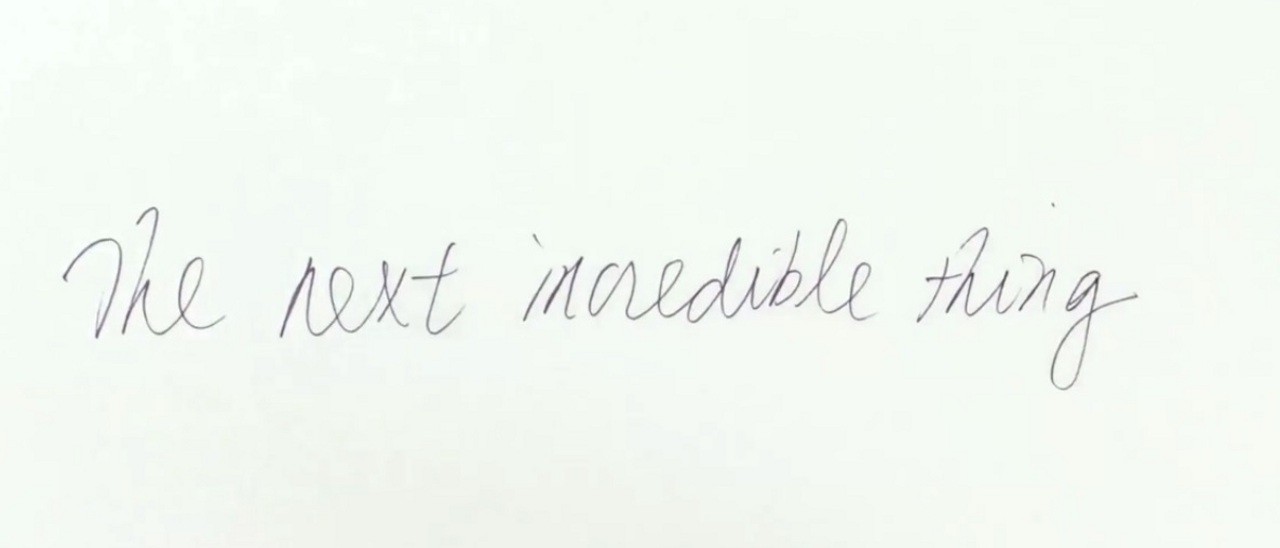 The next incredible thing